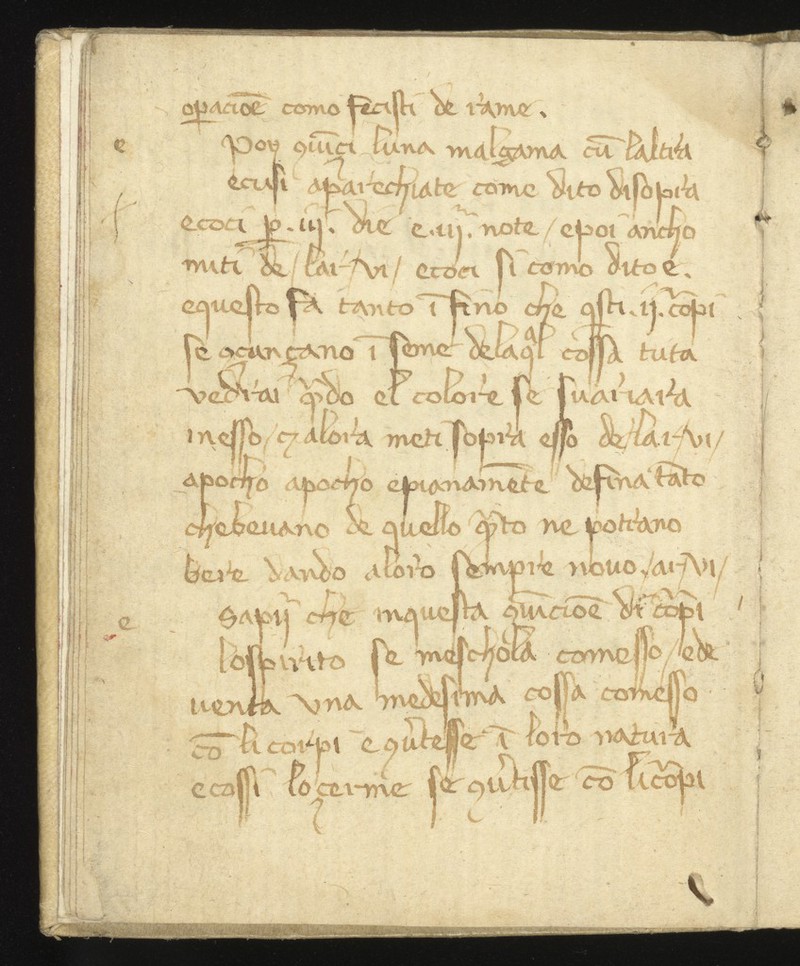 opacioē como fecisti de rame.
e Poy 9iūci luna malgama cū laltra
ecusi aparechiate come dito disopra
ecoci p̱ .iij. die e .iij. note / epoi ancho
miti de / lar / vi / ecoci si como dito e.
equesto fa tanto ī fino che q̄sti .ij. corpi
se ī seme delaq̄l cossa tuta
vedrai q̄do el colore se suariara
inesso / alora meti sopra esso de / lar / vi /
apocho apocho epianamēte defina tāto
chebevano de quello q̄to ne potrano
bere dando aloro sempre novo / ar / vi /
e Sapij che inquesta 9iūcioē di corpi
lospirito se meschola comesso / ede
venta una medesima cossa comesso
cō li corpi e 9v̄tesse ī loro natura
ecossi lo çerme se 9v̄tisse cō li corpi